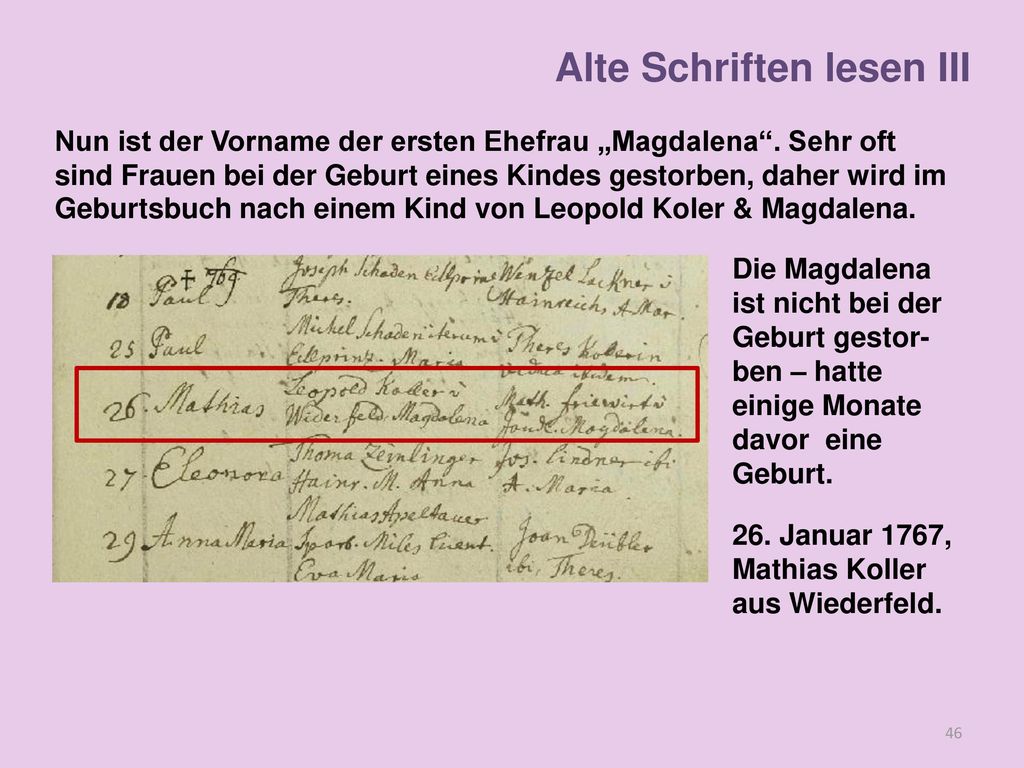 Alte Schriften lesen III
Nun ist der Vorname der ersten Ehefrau „Magdalena“. Sehr oft
sind Frauen bei der Geburt eines Kindes gestorben, daher wird im
Geburtsbuch nach einem Kind von Leopold Koler & Magdalena.
Die Magdalena
ist nicht bei der
Geburt gestor-
ben – hatte
einige Monate
davor eine
Geburt.
26. Januar 1767,
Mathias Koller
aus Wiederfeld.
18 Paul
Joseph Schaden
Theres.
Wenzel Lackner
Hainreichs A. Mar.
25 Paul
Michel Schaden
Maria
Theres Kollerin
vidua ibidem.
26. Mathias
Leopold Koller
Widerfeld. Magdalena
Math.
Magdalena.
27 Eleonora
Thoma Zeinlinger
Hainr. M. Anna
Jos. Lindner ibi
A. Maria
29 Anna Maria
Mathias
Miles
Eva Maria
Joan
ibi, Theres.
46